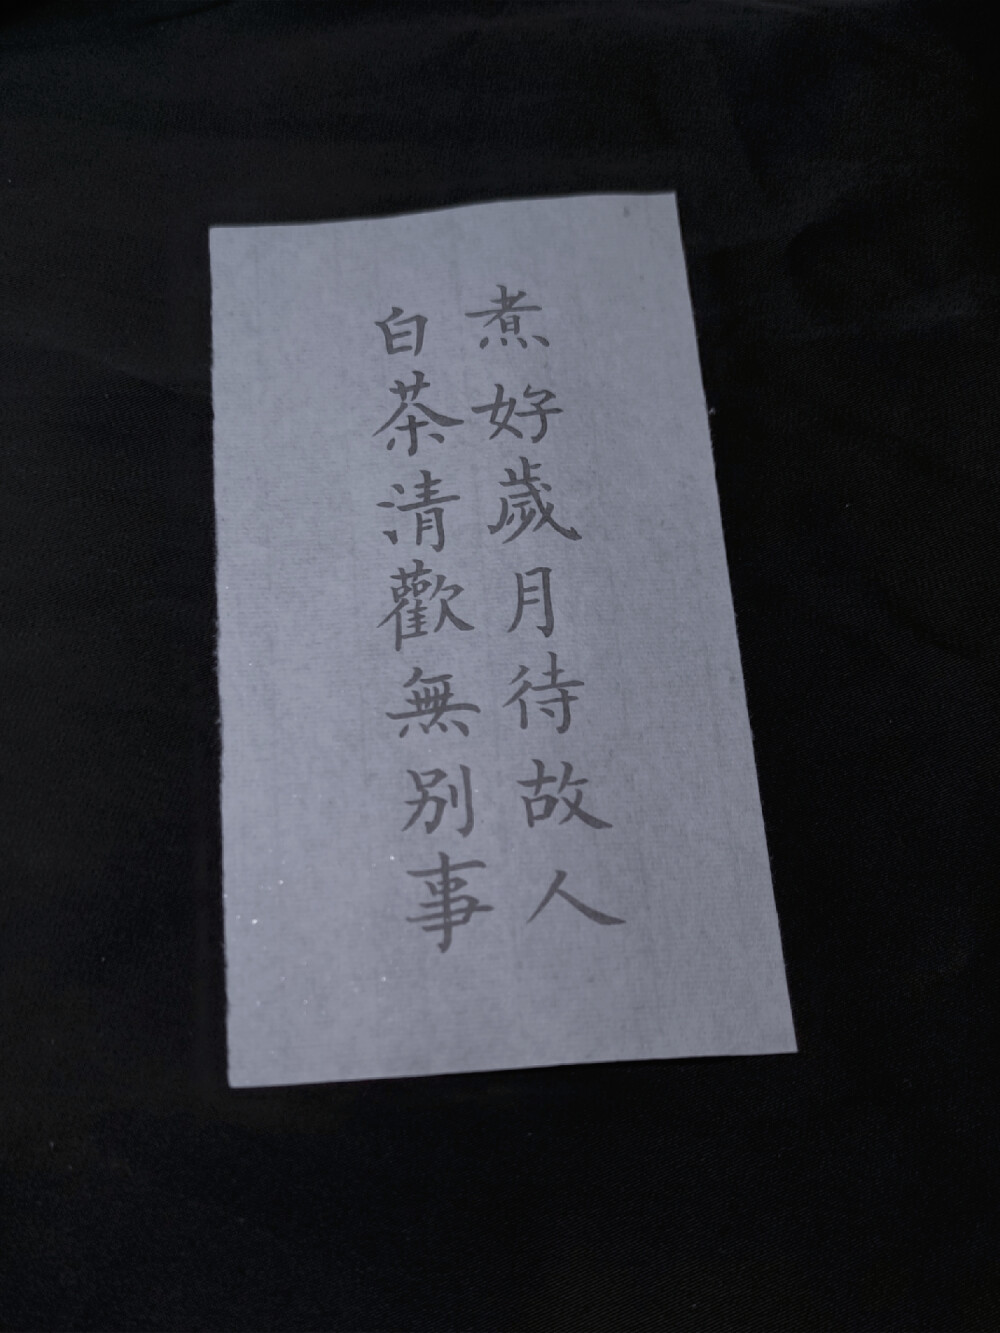 煮好歲月待故人
白茶清歡無別事